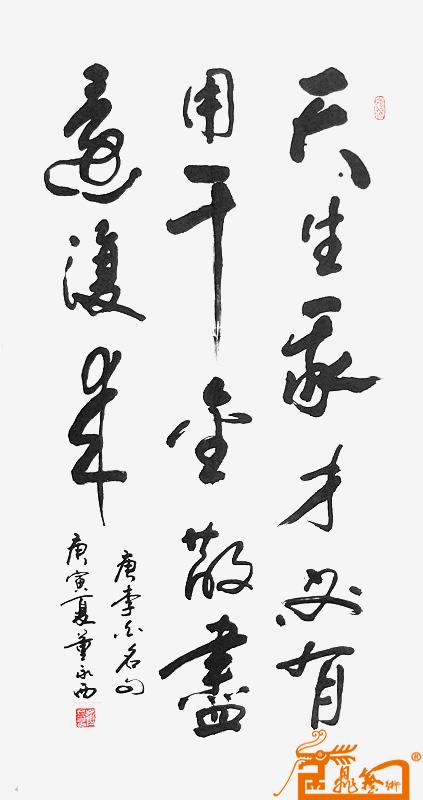 天生我才必有
用千金散盡
還復来
唐李白名句
庚寅夏董永西